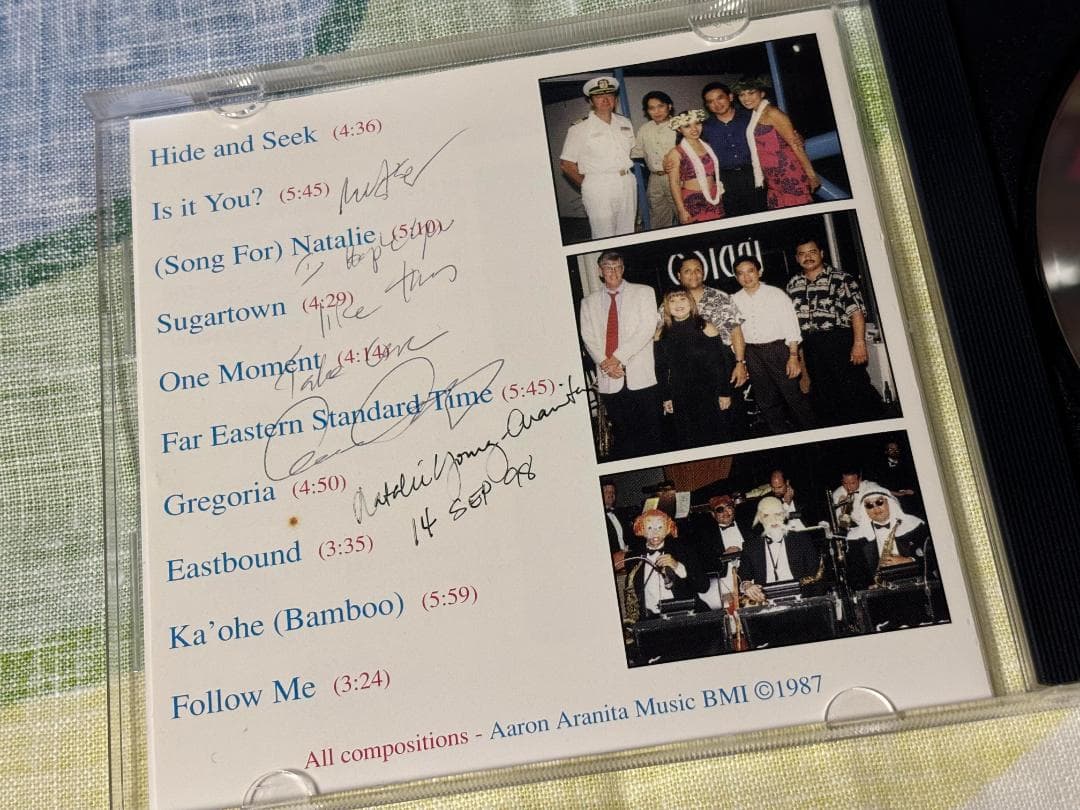 Hide and Seek (4:36)
Is it You? (5:45)
(Song For) Natalie (5:10)
Sugartown (4:29)
One Moment (4:14)
Far Eastern Standard Time (5:45)
Gregoria (4:50)
Eastbound (3:35)
Ka'ohe (Bamboo) (5:59)
Follow Me (3:24)
All compositions - Aaron Aranita Music BMI ©1987
hope
like this
Take care
Natalie Young-Aranita
14 SEP 98